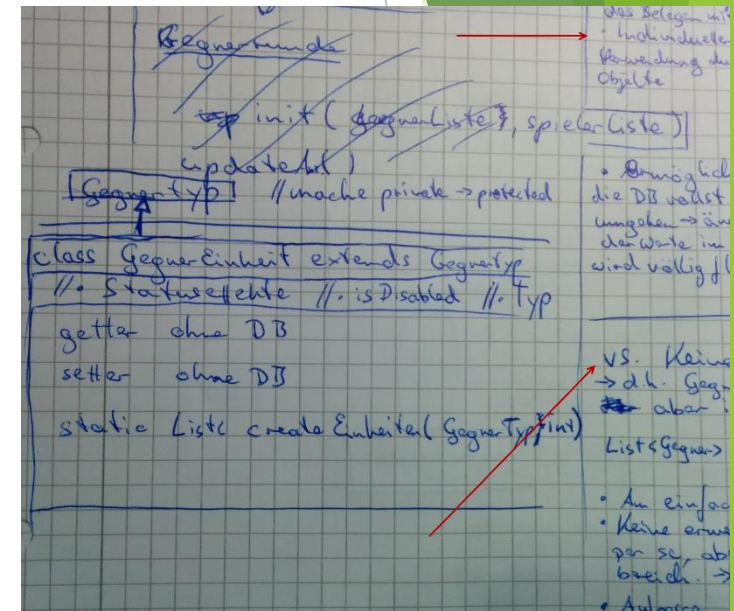 Gegnerrunde
init( gegnerListe, spielerListe)
update
GegnerTyp //mache private → protected
class GegnerEinheit extends GegnerTyp
//. Statuseffekte //. isDisabled //. Typ
getter ohne DB
setter ohne DB
static List< createEinheiten( GegnerTyp, int)
das Belegen mit
• Individuelle
Verwendung
Objekte
• Ermöglich
die DB vollst
umgehen → än
der Werte im
wird völlig fl
vs. Keine
→ d.h. Gegn
aber
List<Gegner>
• Am einfac
• Keine erwe
per se, ab
bereich. →